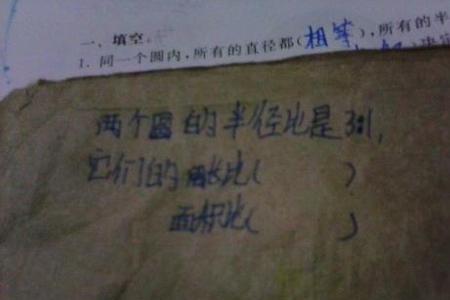 一、填空。
1. 同一个圆内，所有的直径都(相等)，所有的半
决定
两个圆的半径比是3:1，
它们的周长比(　　)
面积比(　　)